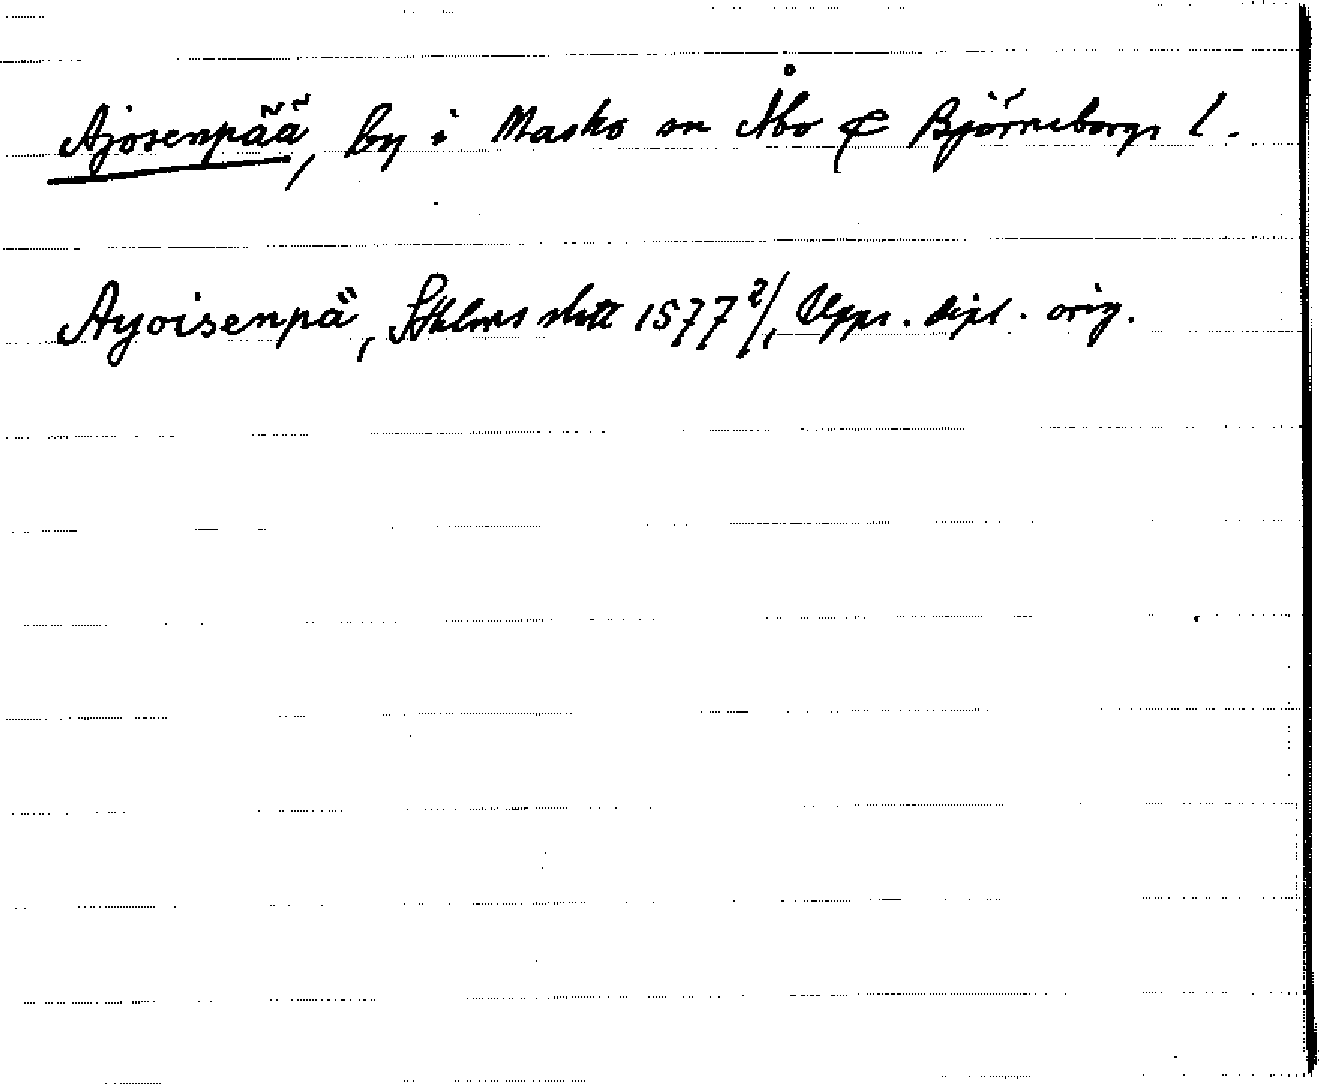 Ajosenpää, by i Masko sn Åbo & Björneborgs l.
Ayoisenpä, Sthlms slott 1577 2/1, Upps. dipl. orig.